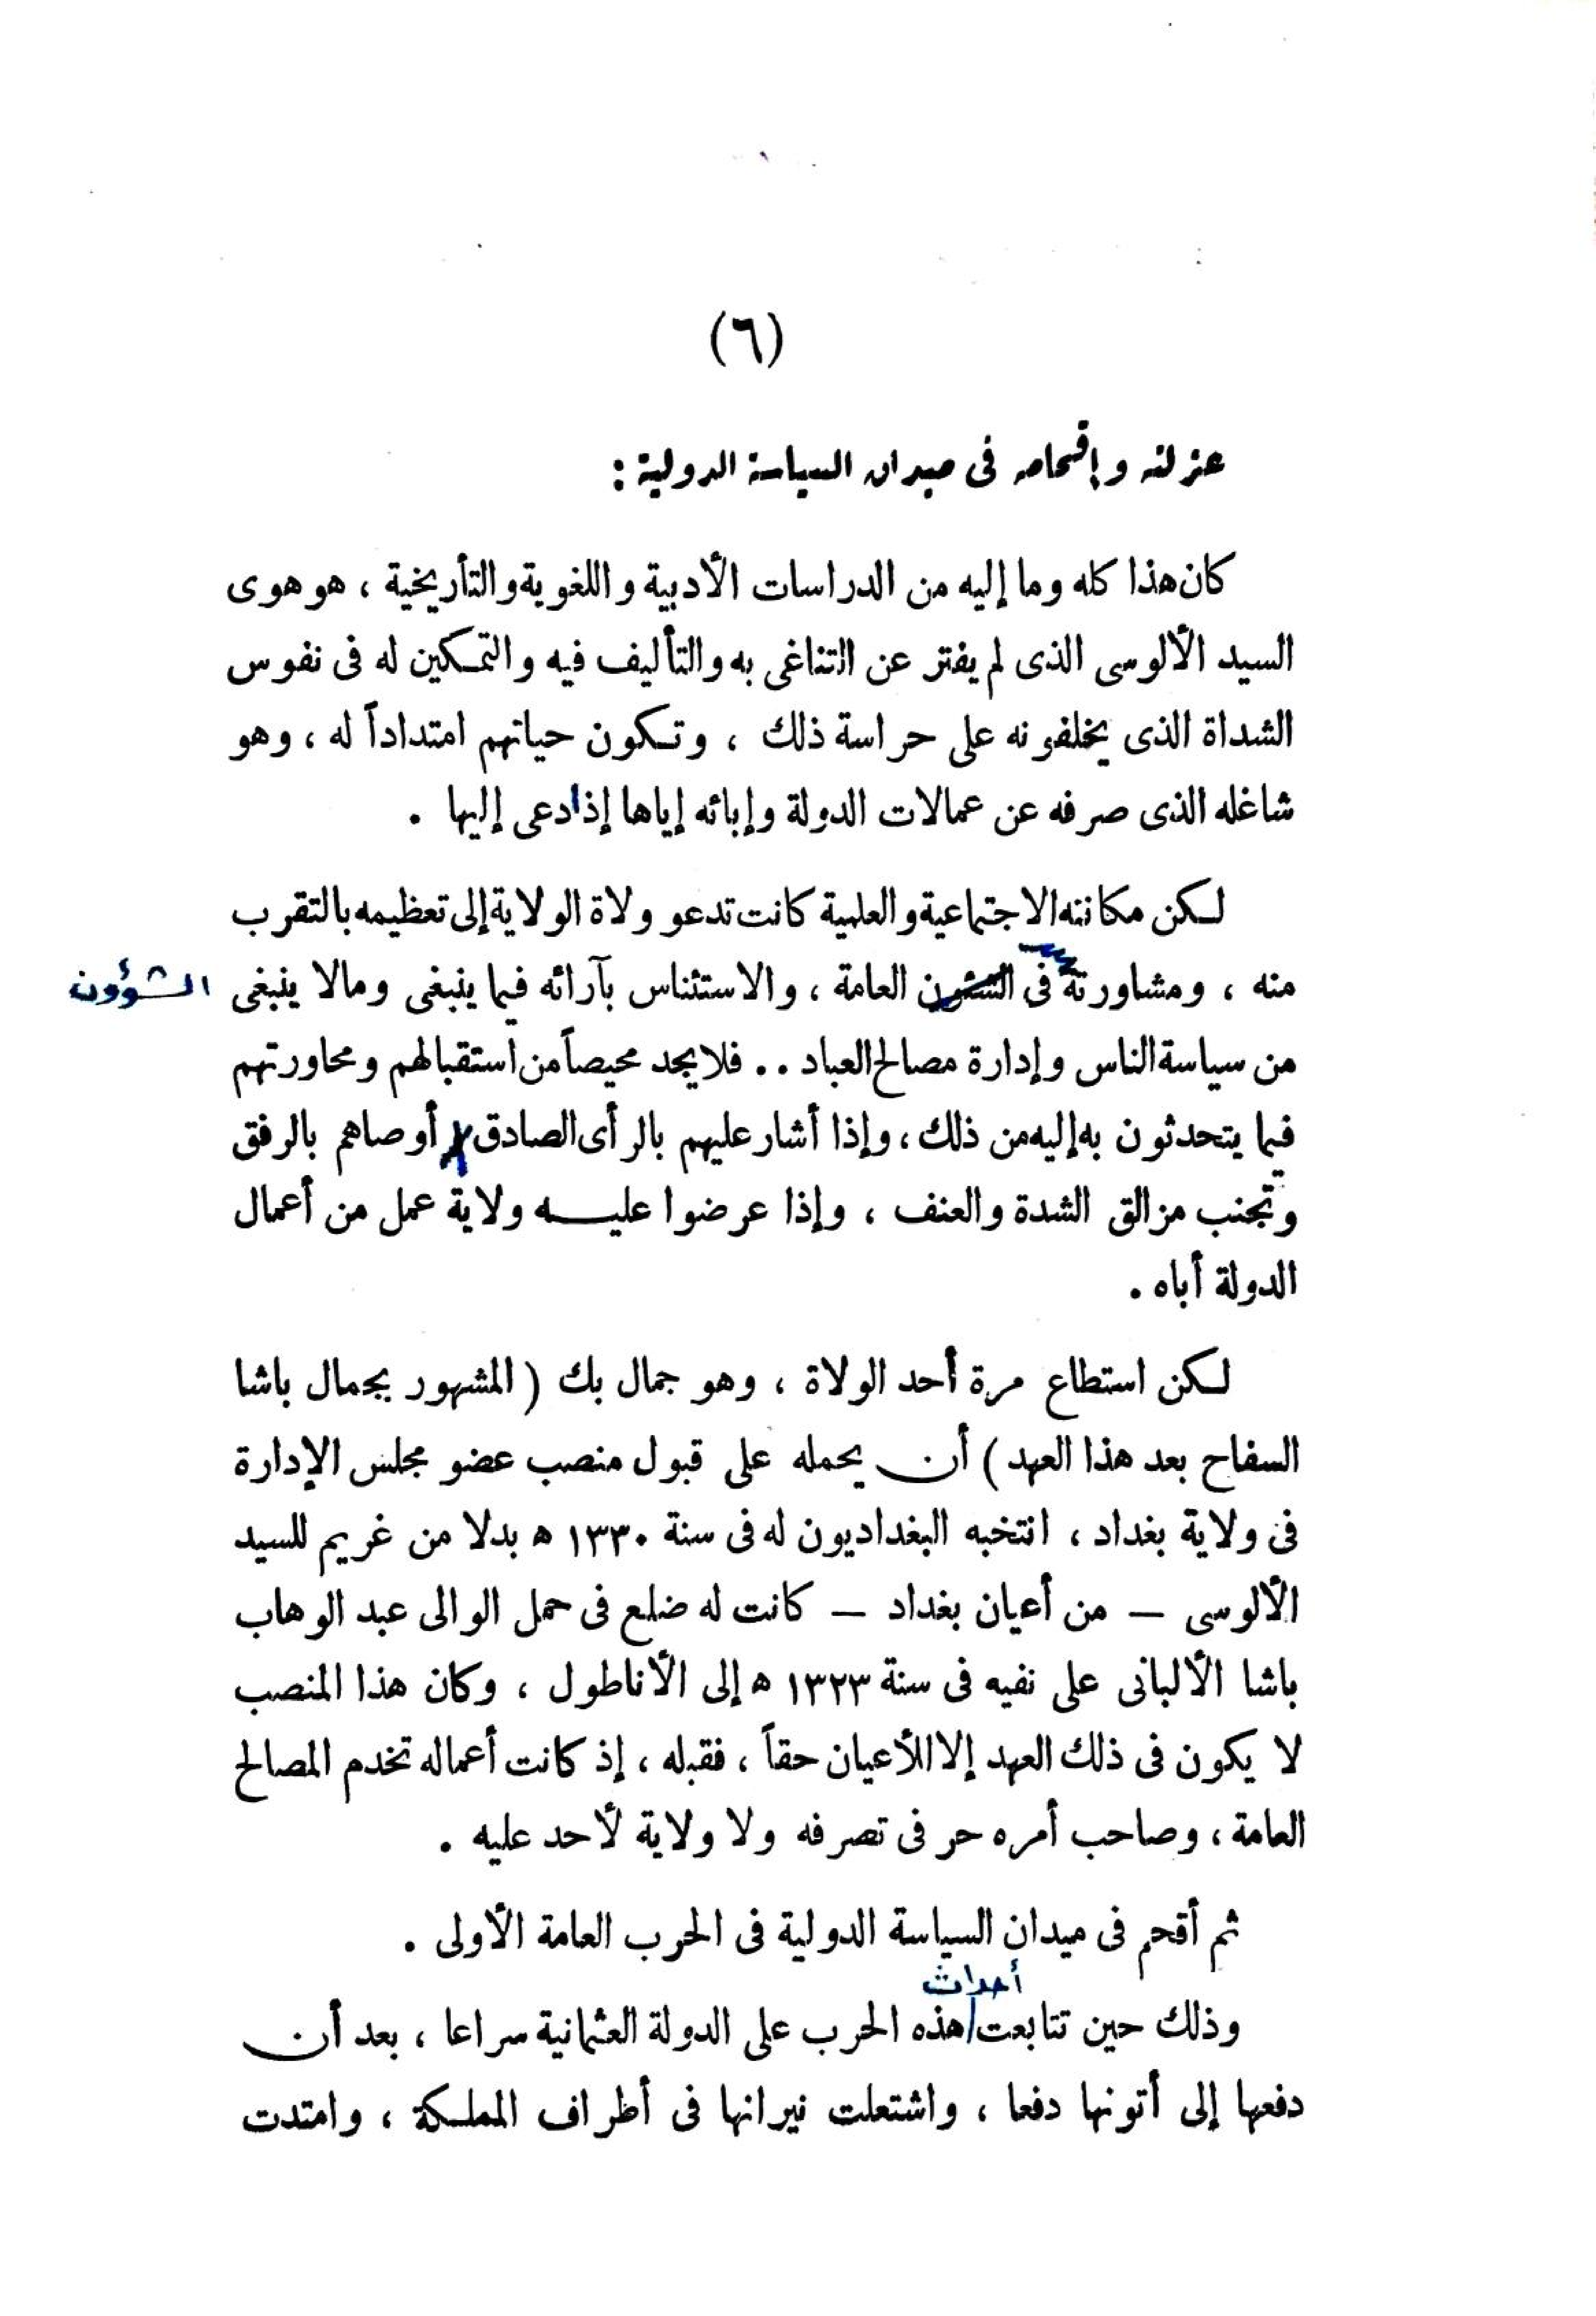 (٦)
عزلته وإقحامه فى ميدان السياسة الدولية :
كان هذا كله وما إليه من الدراسات الأدبية واللغوية والتأريخية ، هو هوى
السيد الألوسى الذى لم يفتر عن التناغى به والتأليف فيه والتمكين له فى نفوس
الشداة الذى يخلفونه على حراسة ذلك ، وتكون حياتهم امتداداً له ، وهو
شاغله الذى صرفه عن عمالات الدولة وإبائه إياها إذا دعى إليها .
لكن مكانته الاجتماعية والعلمية كانت تدعو ولاة الولاية إلى تعظيمه بالتقرب
منه ، ومشاورته فى الشئون العامة ، والاستئناس بآرائه فيما ينبغى ومالا ينبغى
الشؤون
من سياسة الناس وإدارة مصالح العباد .. فلا يجد محيصاً من استقبالهم ومحاورتهم
فيما يتحدثون به إليه من ذلك ، وإذا أشار عليهم بالرأى الصادق أوصاهم بالرفق
وتجنب مزالق الشدة والعنف ، وإذا عرضوا عليه ولاية عمل من أعمال
الدولة أباه .
لكن استطاع مرة أحد الولاة ، وهو جمال بك ( المشهور بجمال باشا
السفاح بعد هذا العهد ) أن يحمله على قبول منصب عضو مجلس الإدارة
فى ولاية بغداد ، انتخبه البغداديون له فى سنة ١٣٣٠ ه بدلا من غريم للسيد
الألوسى — من أعيان بغداد — كانت له ضلع فى حمل الوالى عبد الوهاب
باشا الألبانى على نفيه فى سنة ١٣٢٣ ه إلى الأناطول ، وكان هذا المنصب
لا يكون فى ذلك العهد إلا للأعيان حقاً ، فقبله ، إذ كانت أعماله تخدم المصالح
العامة ، وصاحب أمره حر فى تصرفه ولا ولاية لأحد عليه .
ثم أقحم فى ميدان السياسة الدولية فى الحرب العامة الأولى .
أحداث
وذلك حين تتابعت هذه الحرب على الدولة العثمانية سراعا ، بعد أن
دفعها إلى أتونها دفعا ، واشتعلت نيرانها فى أطراف المملكة ، وامتدت